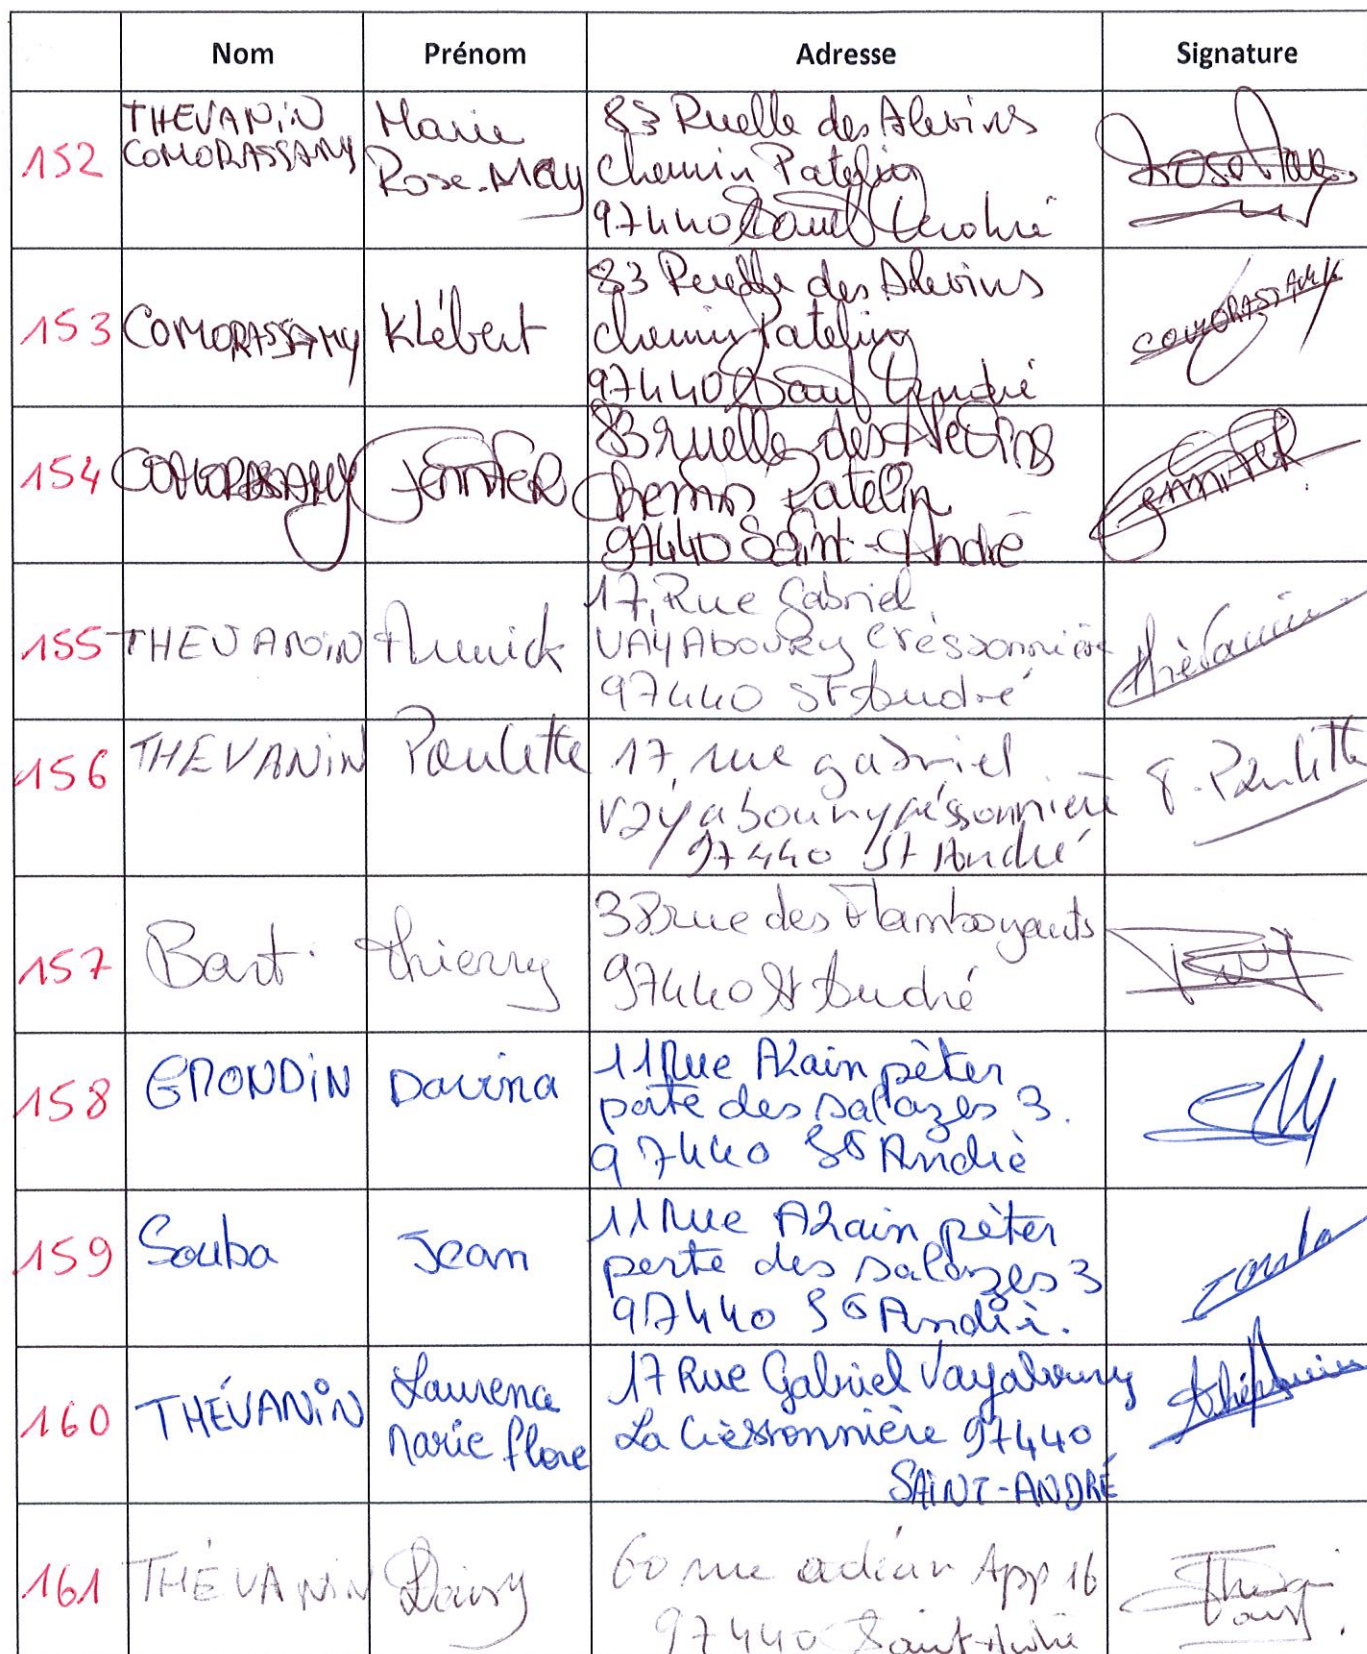 Nom Prénom Adresse Signature
152 THEVANIN COMORASSAMY Marie Rose-May 83 Ruelle des Alevins
Chemin Patelin
97440 Saint André
153 COMORASSAMY Klébert 83 Ruelle des Alevins
Chemin Patelin
97440 Saint André
COMORASSAMY
154 COMORASSAMY JENNIFER 83 ruelle des Alevins
Chemin Patelin
97440 Saint-André
Jennifer
155 THEVANIN Annick 17, Rue Gabriel
VAYABOURY Créssonnière
97440 St André
Thévanin
156 THEVANIN Paulette 17, rue gabriel
vayaboury créssonnière
97440 St André
T. Paulette
157 Bart Thierry 38 rue des Flamboyants
97440 St André
158 GRONDIN Davina 11 Rue Alain pèter
porte des salazes 3.
97440 St Andrè
159 Souba Jean 11 Rue Alain pèter
porte des salazes 3
97440 St Andrè.
Souba
160 THÉVANIN Laurence Marie flore 17 Rue Gabriel Vayaboury
La Cressonnière 97440
SAINT-ANDRÉ
161 THÉVANIN Daisy 60 rue adéan App 16
97440 Saint-André